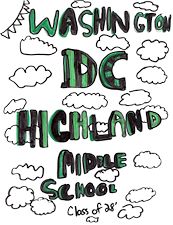 WASHINGTON
DC
HIGHLAND
MIDDLE
SCHOOL
Class of 28'